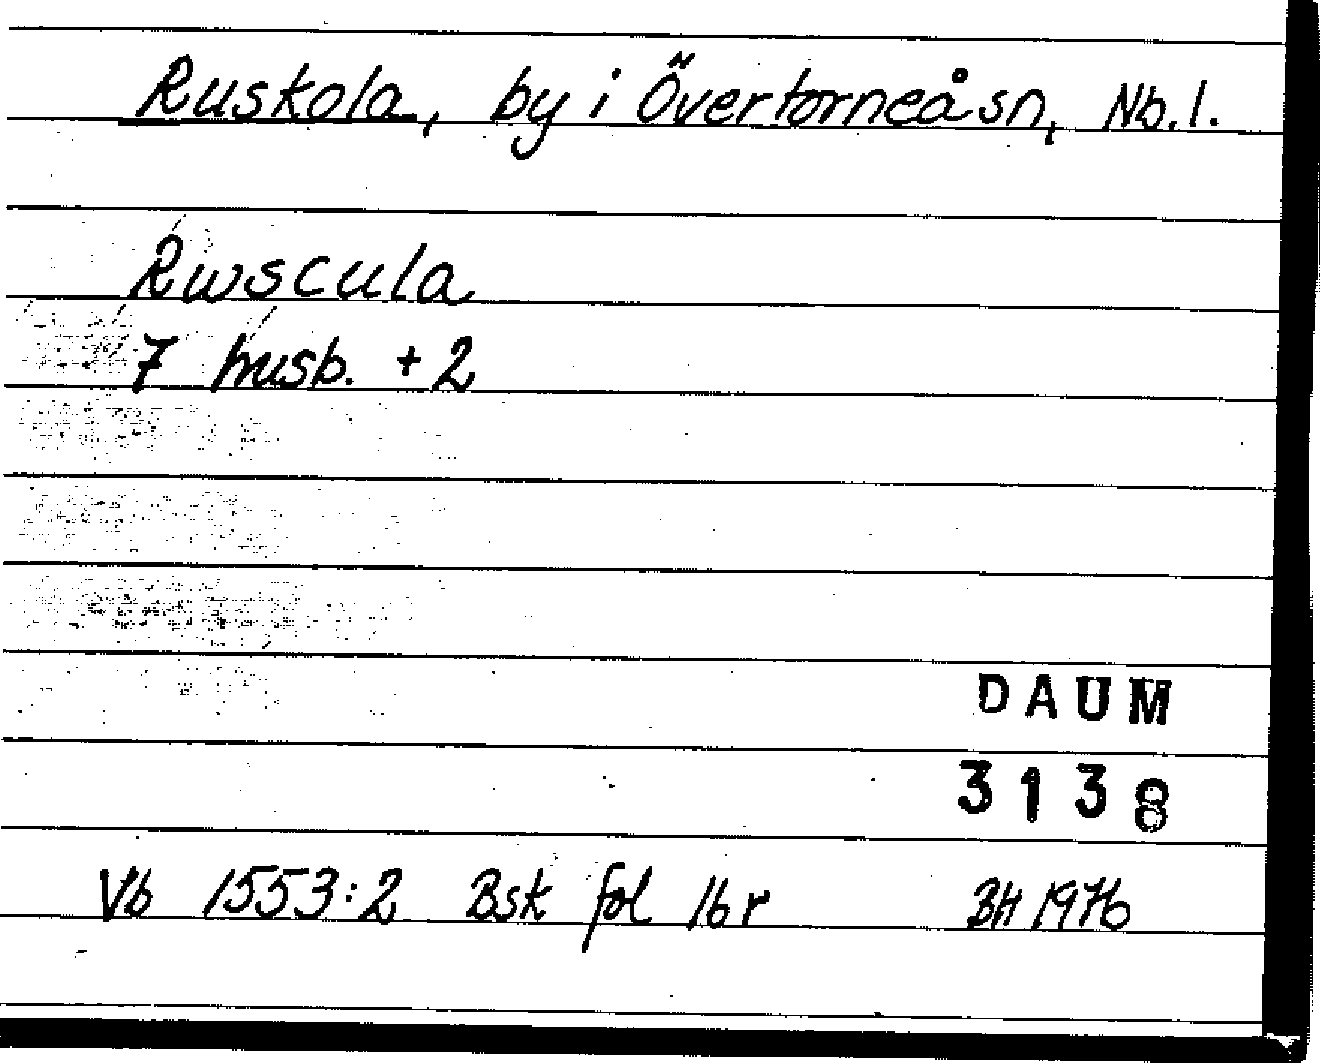 Ruskola, by i Övertorneå sn, Nb. l.
Rwscula
7 husb. + 2
DAUM
3138
Vb 1553:2 Bsk fol 16 r BH 1976